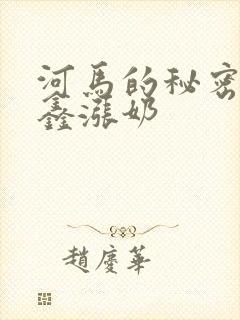 河马的秘密
鑫涨奶
趙慶華